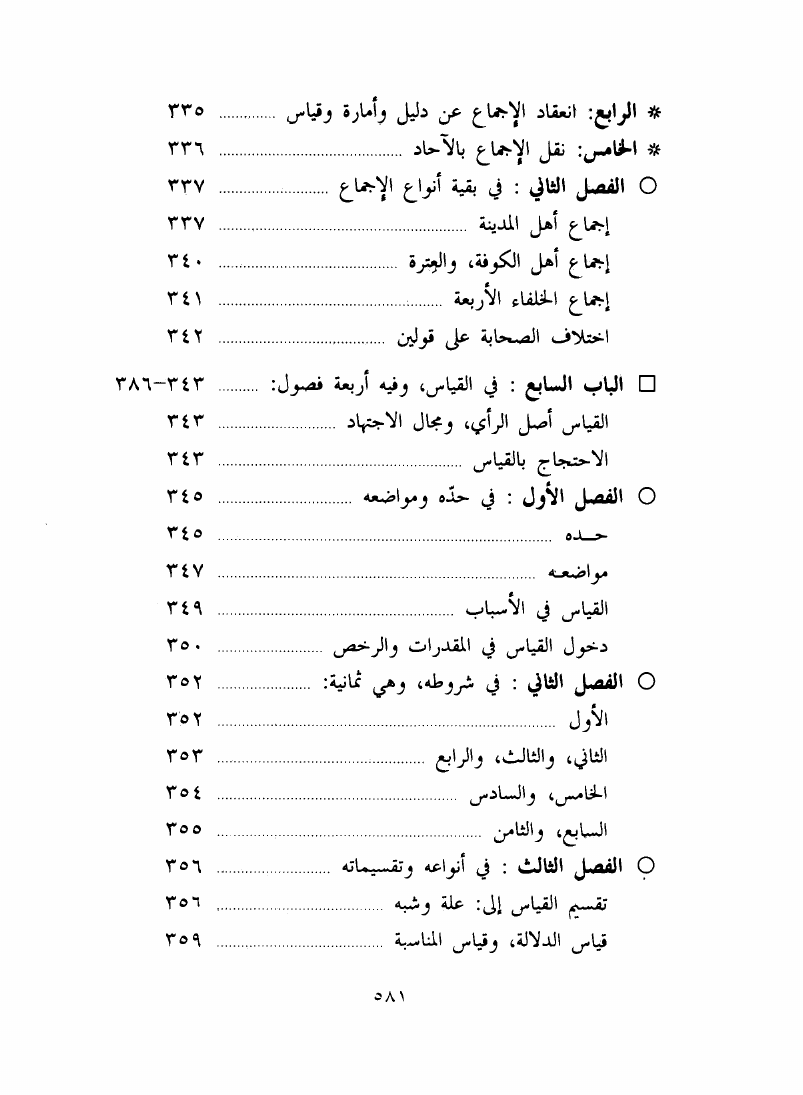 * الرابع: انعقاد الإجماع عن دليل وأمارة وقياس .............. ٣٣٥
* الخامس: نقل الإجماع بالآحاد .............. ٣٣٦
○ الفصل الثاني : في بقية أنواع الإجماع .............. ٣٣٧
إجماع أهل المدينة .............. ٣٣٧
إجماع أهل الكوفة، والعِترة .............. ٣٤٠
إجماع الخلفاء الأربعة .............. ٣٤١
اختلاف الصحابة على قولين .............. ٣٤٢
□ الباب السابع : في القياس، وفيه أربعة فصول: .......... ٣٤٣-٣٨٦
القياس أصل الرأي، ومجال الاجتهاد .............. ٣٤٣
الاحتجاج بالقياس .............. ٣٤٣
○ الفصل الأول : في حدّه ومواضعه .............. ٣٤٥
حـــده .............. ٣٤٥
مواضعـه .............. ٣٤٧
القياس في الأسباب .............. ٣٤٩
دخول القياس في المقدرات والرخص .............. ٣٥٠
○ الفصل الثاني : في شروطه، وهي ثمانية: .............. ٣٥٢
الأول .............. ٣٥٢
الثاني، والثالث، والرابع .............. ٣٥٣
الخامس، والسادس .............. ٣٥٤
السابع، والثامن .............. ٣٥٥
○ الفصل الثالث : في أنواعه وتقسيماته .............. ٣٥٦
تقسيم القياس إلى: علة وشبه .............. ٣٥٦
قياس الدلالة، وقياس المناسبة .............. ٣٥٩
٥٨١